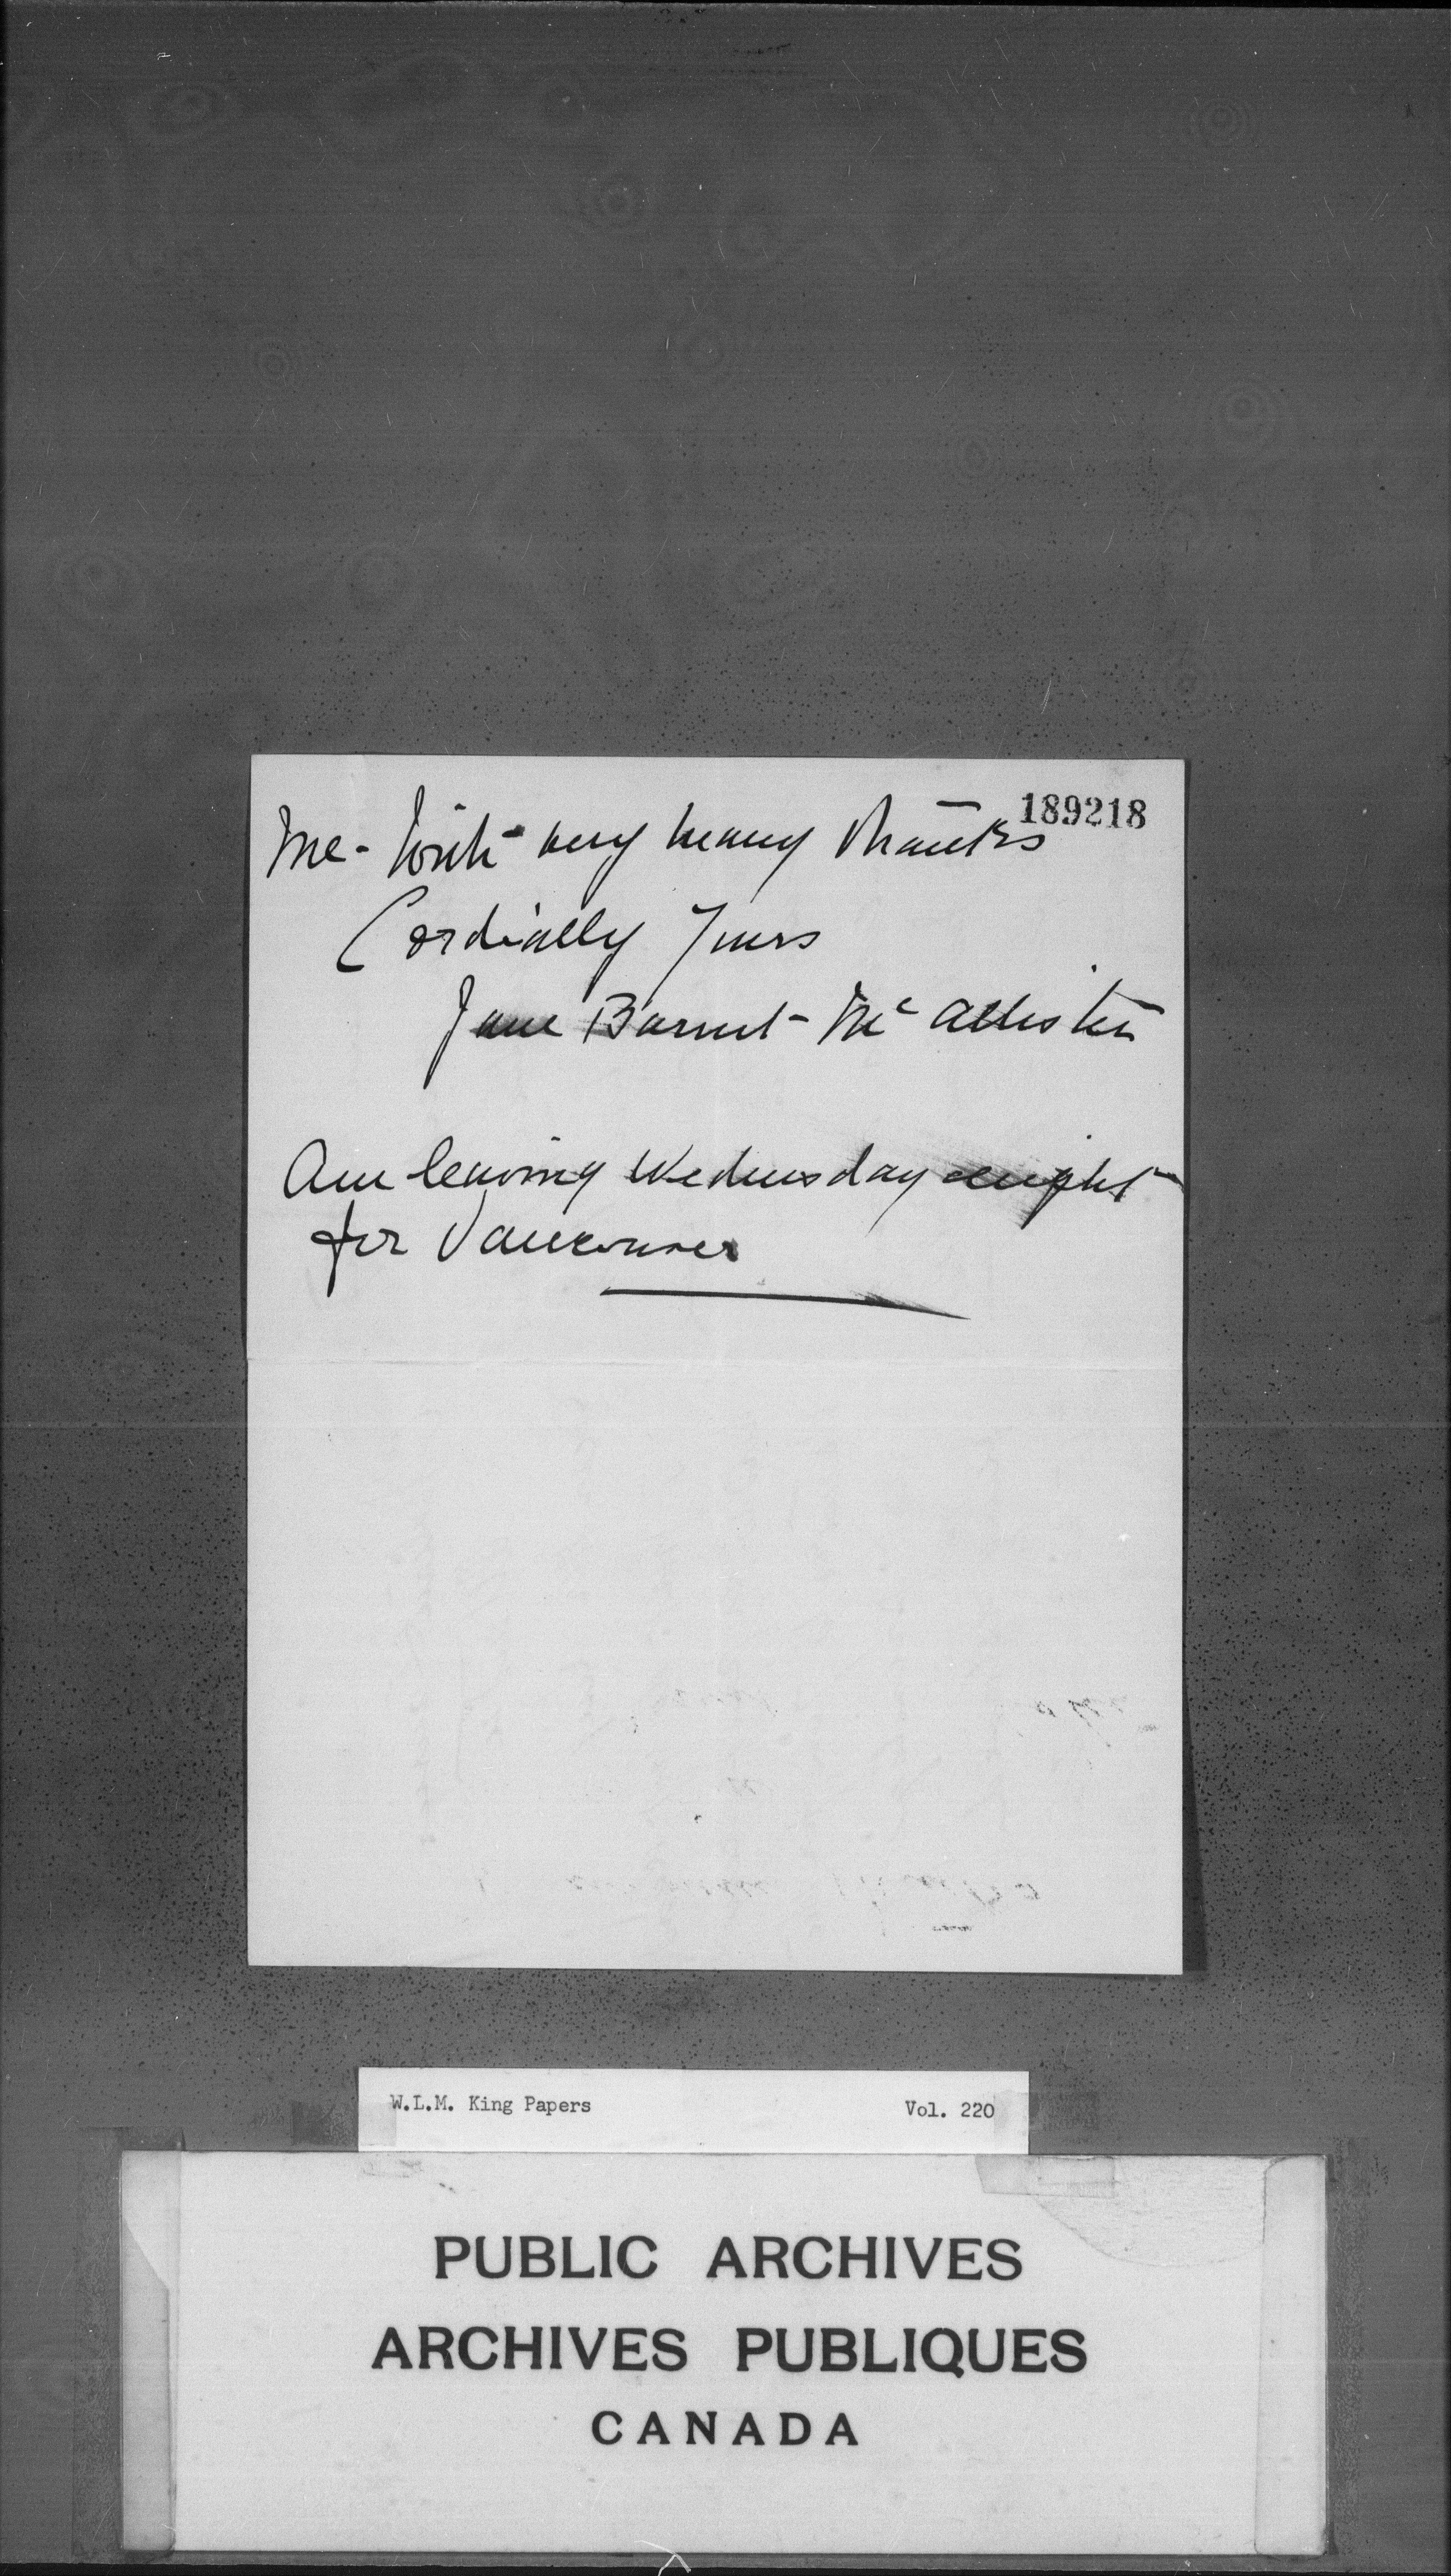 189218
me - with very many thanks
Cordially Yours
Jane Barnet - McAllister
Am leaving Wednesday night
for Vancouver
W.L.M. King Papers Vol. 220
PUBLIC ARCHIVES
ARCHIVES PUBLIQUES
CANADA